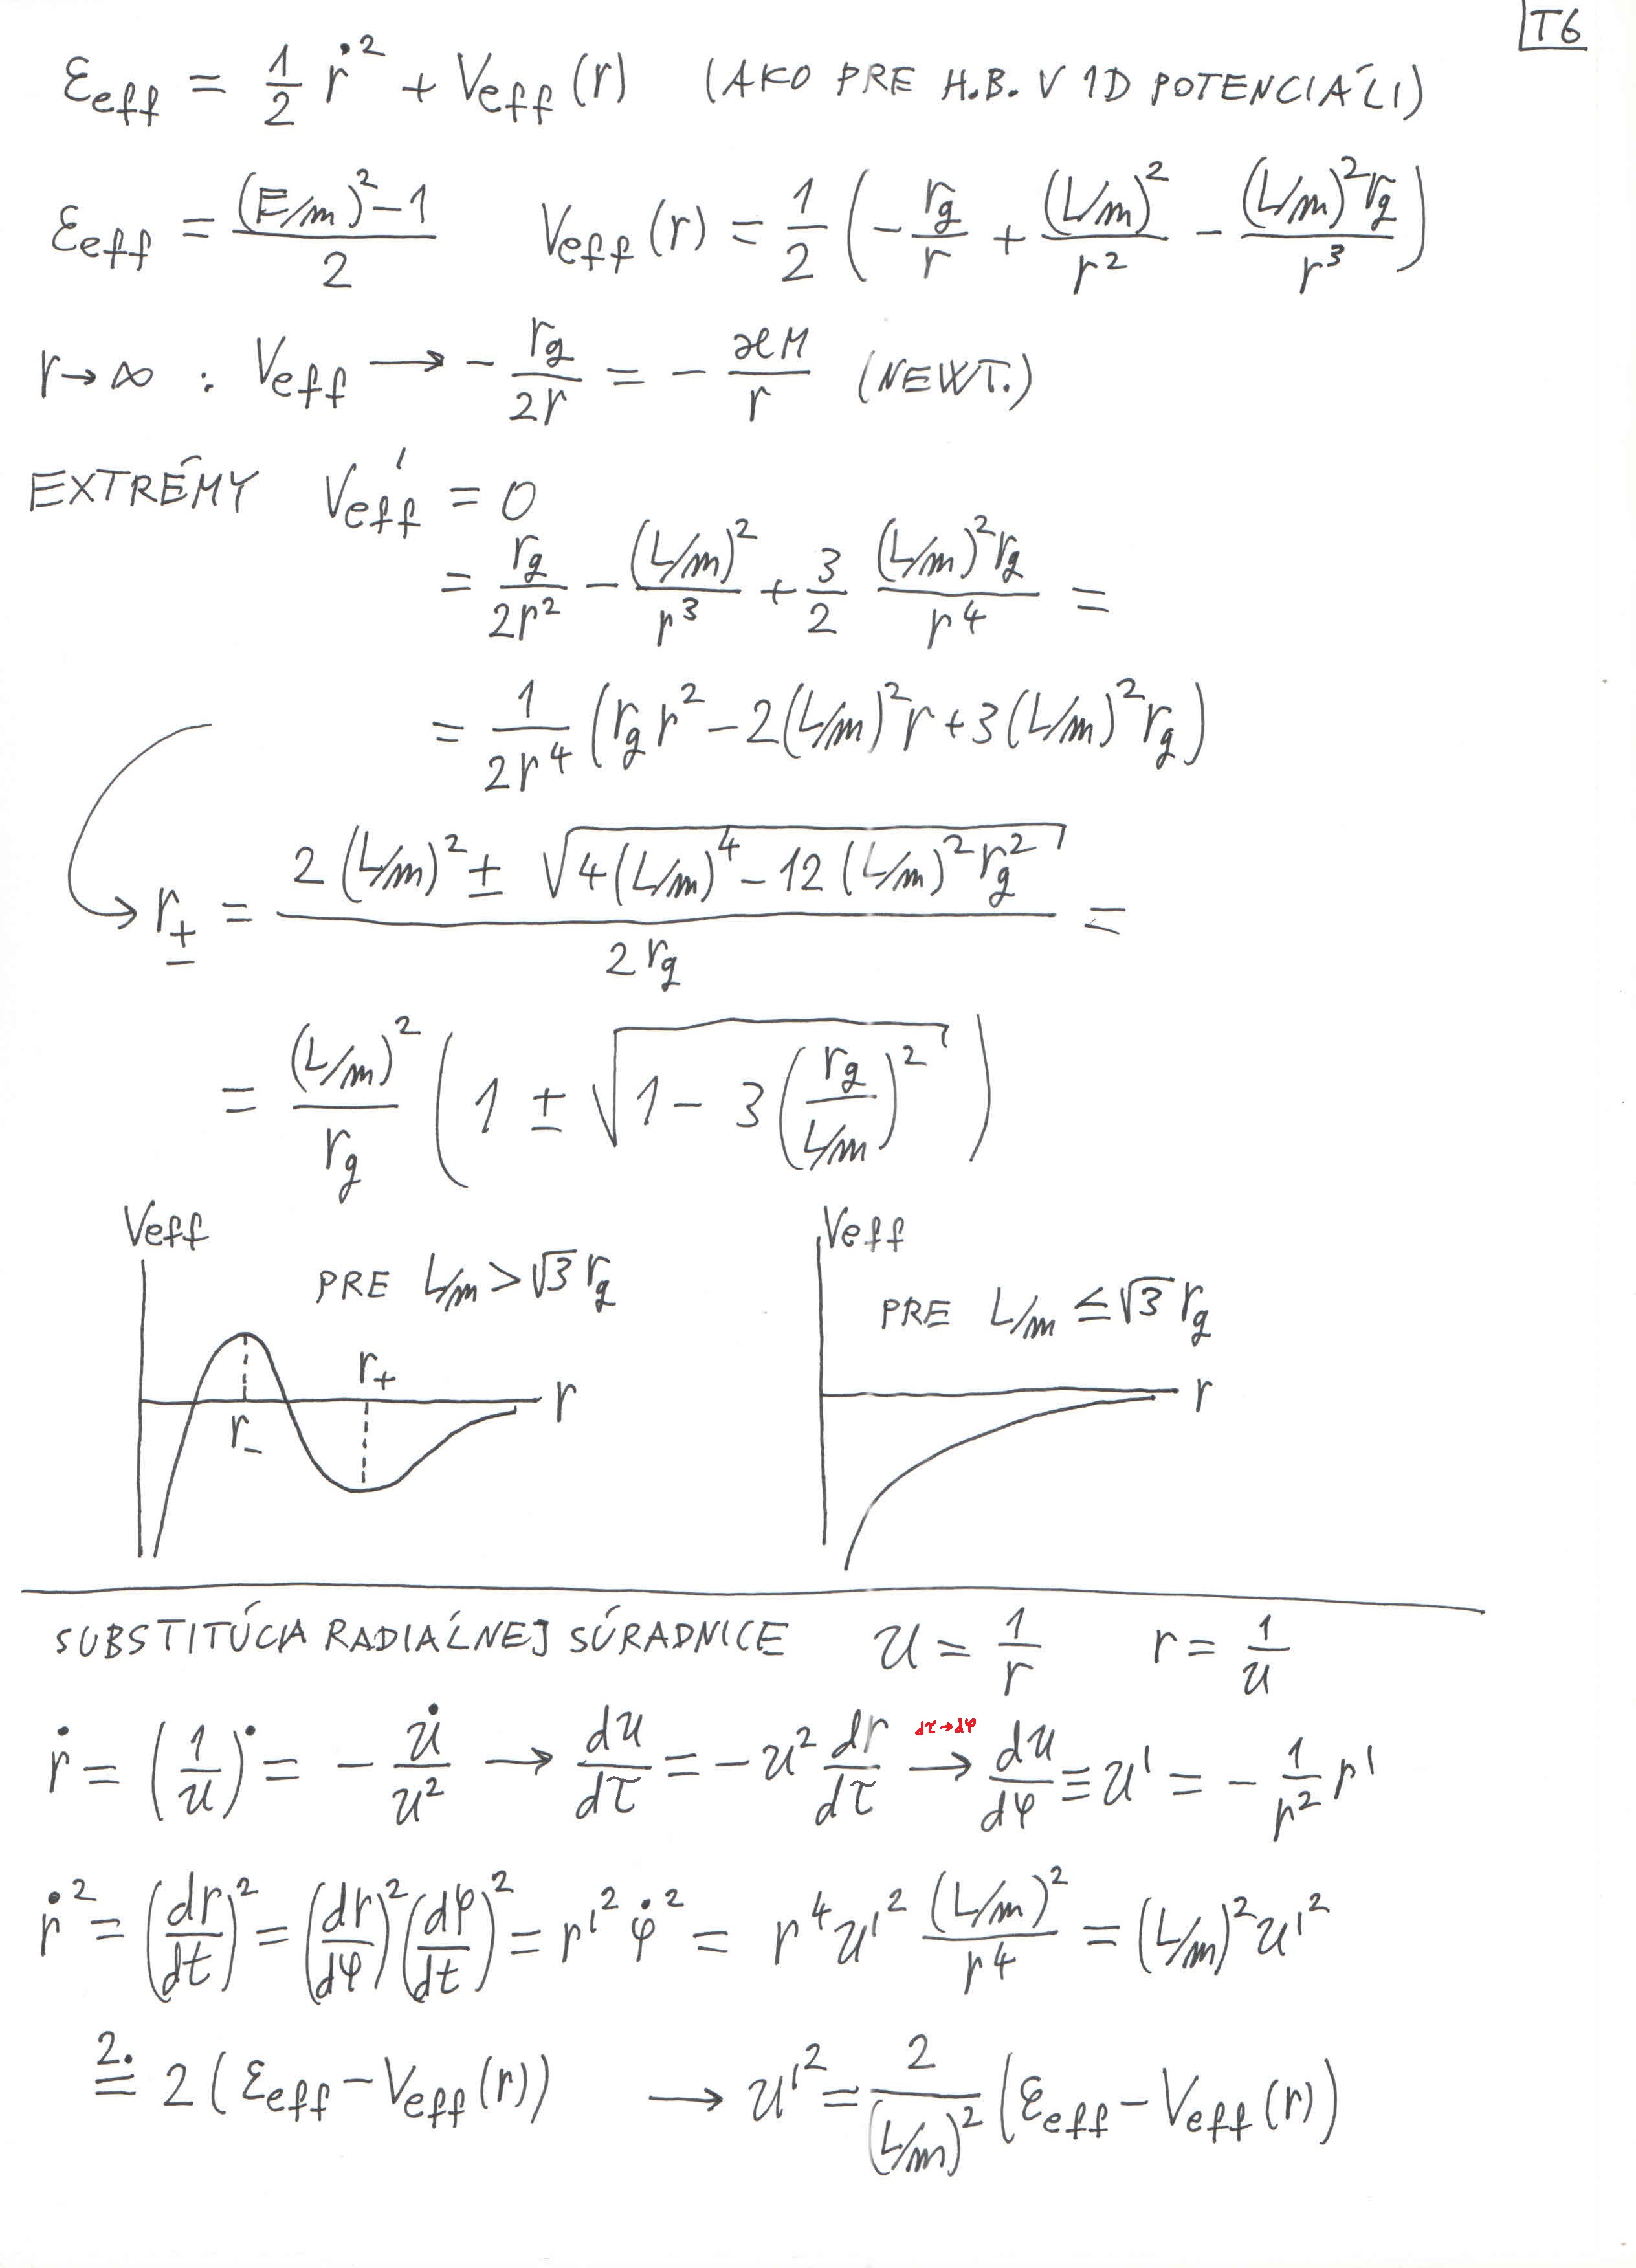 T6
ε_eff = 1/2 ṙ² + V_eff(r) (AKO PRE H.B. V 1D POTENCIÁLI)
ε_eff = ((E/m)² - 1)/2 V_eff(r) = 1/2 (- r_g/r + (L/m)²/r² - (L/m)² r_g/r³)
r → ∞ : V_eff → - r_g/2r = - ϰM/r (NEWT.)
EXTRÉMY V'_eff = 0
= r_g/2r² - (L/m)²/r³ + 3/2 (L/m)² r_g/r⁴ =
= 1/2r⁴ (r_g r² - 2(L/m)² r + 3(L/m)² r_g)
→ r_± = (2(L/m)² ± √(4(L/m)⁴ - 12(L/m)² r_g²))/2r_g =
= (L/m)²/r_g (1 ± √(1 - 3(r_g/(L/m))²))
V_eff PRE L/m > √3 r_g
r_+
r
r_-
V_eff
PRE L/m ≤ √3 r_g
r
SUBSTITÚCIA RADIÁLNEJ SÚRADNICE u = 1/r r = 1/u
ṙ = (1/u)˙ = - u̇/u² → du/dτ = -u² dr/dτ dτ→dφ → du/dφ ≡ u' = - 1/r² r'
ṙ² = (dr/dt)² = (dr/dφ)² (dφ/dt)² = r'² φ̇² = r⁴ u'² (L/m)²/r⁴ = (L/m)² u'²
2. = 2(ε_eff - V_eff(r)) → u'² = 2/(L/m)² (ε_eff - V_eff(r))